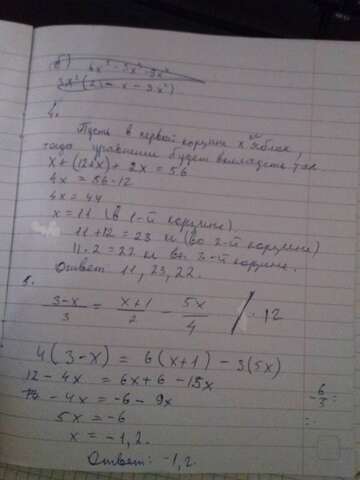 б) 6x³ - 3x² - 9x⁴
3x² (2x - x - 3x²)
4.
Пусть в первой корзине x яблок,
тогда уравнение будет выглядеть так
x + (12+x) + 2x = 56
4x = 56 - 12
4x = 44
x = 11 (в 1-й корзине).
11 + 12 = 23 к (во 2-й корзине)
11·2 = 22 к в 3-й корзине.
Ответ 11, 23, 22.
5.
(3-x)/3 = (x+1)/2 - 5x/4 / · 12
4(3-x) = 6(x+1) - 3(5x)
12 - 4x = 6x + 6 - 15x
- 4x = -6 - 9x
5x = -6
x = -1,2.
Ответ: -1,2.